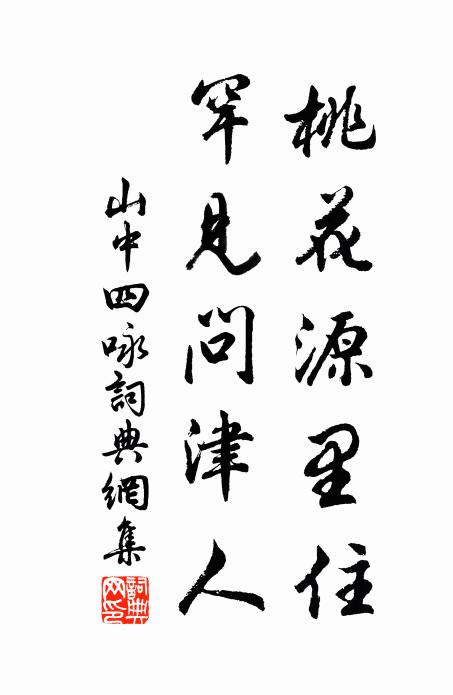 桃花源里住
罕見問津人
山中四咏詞典網集
詞典網印